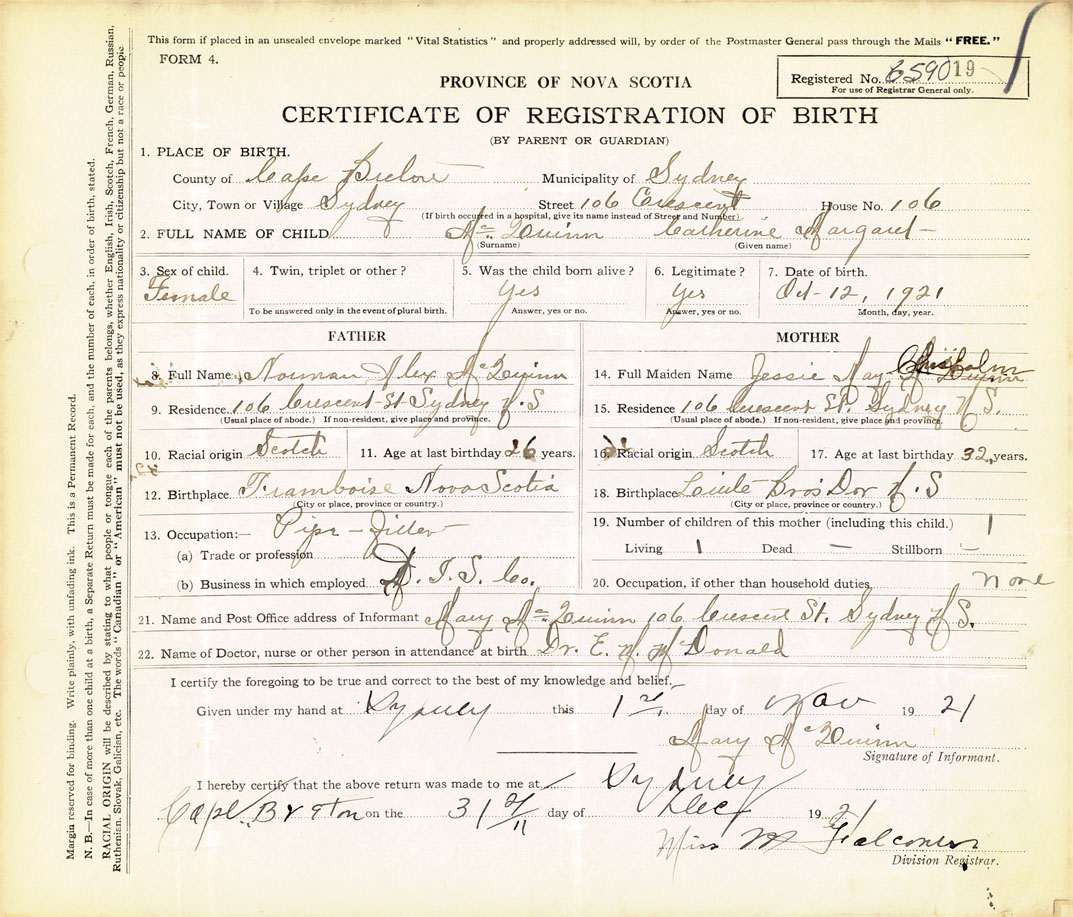 This form if placed in an unsealed envelope marked "Vital Statistics" and properly addressed will, by order of the Postmaster General pass through the Mails "FREE."
FORM 4.
Registered No. 6590 19
For use of Registrar General only.
PROVINCE OF NOVA SCOTIA
CERTIFICATE OF REGISTRATION OF BIRTH
(BY PARENT OR GUARDIAN)
1. PLACE OF BIRTH.
County of Cape Breton Municipality of Sydney
City, Town or Village Sydney Street 106 Crescent House No. 106
(If birth occurred in a hospital, give its name instead of Street and Number)
2. FULL NAME OF CHILD Mc Quinn Catherine Margaret
(Surname) (Given name)
3. Sex of child. 4. Twin, triplet or other? 5. Was the child born alive? 6. Legitimate? 7. Date of birth.
Female Yes Yes Oct-12, 1921
To be answered only in the event of plural birth. Answer, yes or no. Answer, yes or no. Month, day, year.
FATHER
8. Full Name Norman Alex McQuinn
9. Residence 106 Crescent St Sydney N.S
(Usual place of abode.) If non-resident, give place and province.
10. Racial origin Scotch 11. Age at last birthday 26 years.
12. Birthplace Framboise Nova Scotia
(City or place, province or country.)
13. Occupation:— Pipe-Fitter
(a) Trade or profession
(b) Business in which employed D. I. S. Co.
MOTHER
14. Full Maiden Name Jessie May Chisholm
15. Residence 106 Crescent St. Sydney N S.
(Usual place of abode.) If non-resident, give place and province.
16. Racial origin Scotch 17. Age at last birthday 32 years.
18. Birthplace Little Bras Dor N.S
(City or place, province or country.)
19. Number of children of this mother (including this child.) 1
Living 1 Dead — Stillborn —
20. Occupation, if other than household duties, none
21. Name and Post Office address of Informant Mary McQuinn 106 Crescent St. Sydney N S.
22. Name of Doctor, nurse or other person in attendance at birth Dr. E. M. McDonald
I certify the foregoing to be true and correct to the best of my knowledge and belief.
Given under my hand at Sydney this 1st day of Nov 19 21
Mary McQuinn
Signature of Informant.
I hereby certify that the above return was made to me at Sydney
Cape Breton on the 31st day of Dec 19 21
Miss M Falconer
Division Registrar.
Margin reserved for binding. Write plainly, with unfading ink. This is a Permanent Record.
N. B.—In case of more than one child at a birth, a Separate Return must be made for each, and the number of each, in order of birth, stated.
RACIAL ORIGIN will be described by stating to what people or tongue each of the parents belongs, whether English, Irish, Scotch, French, German, Russian,
Ruthenian, Slovak, Galician, etc. The words "Canadian" or "American" must not be used, as they express nationality or citizenship but not a race or people